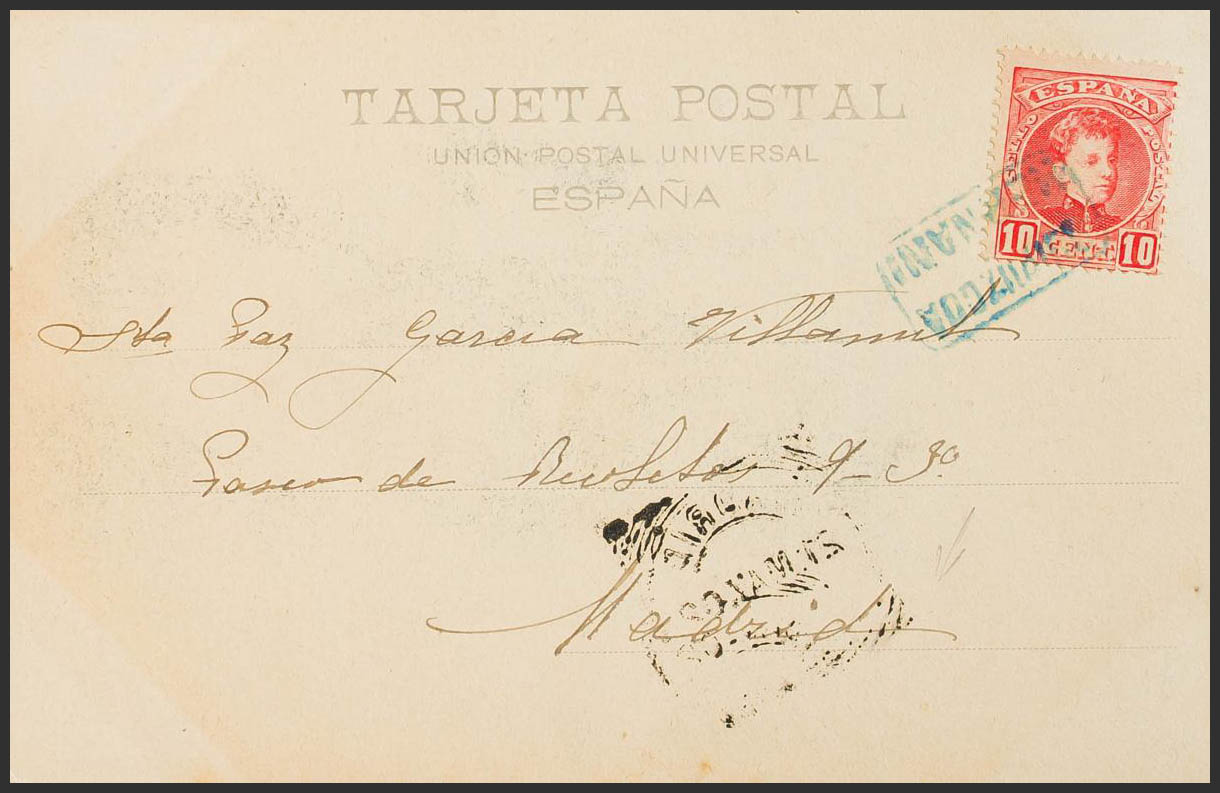 TARJETA POSTAL
UNIÓN POSTAL UNIVERSAL
ESPAÑA
ESPAÑA
SELLO POSTAL
10 CENT 10
Sta Paz Garcia Villamil
Paseo de Recoletos 9-3º
Madrid